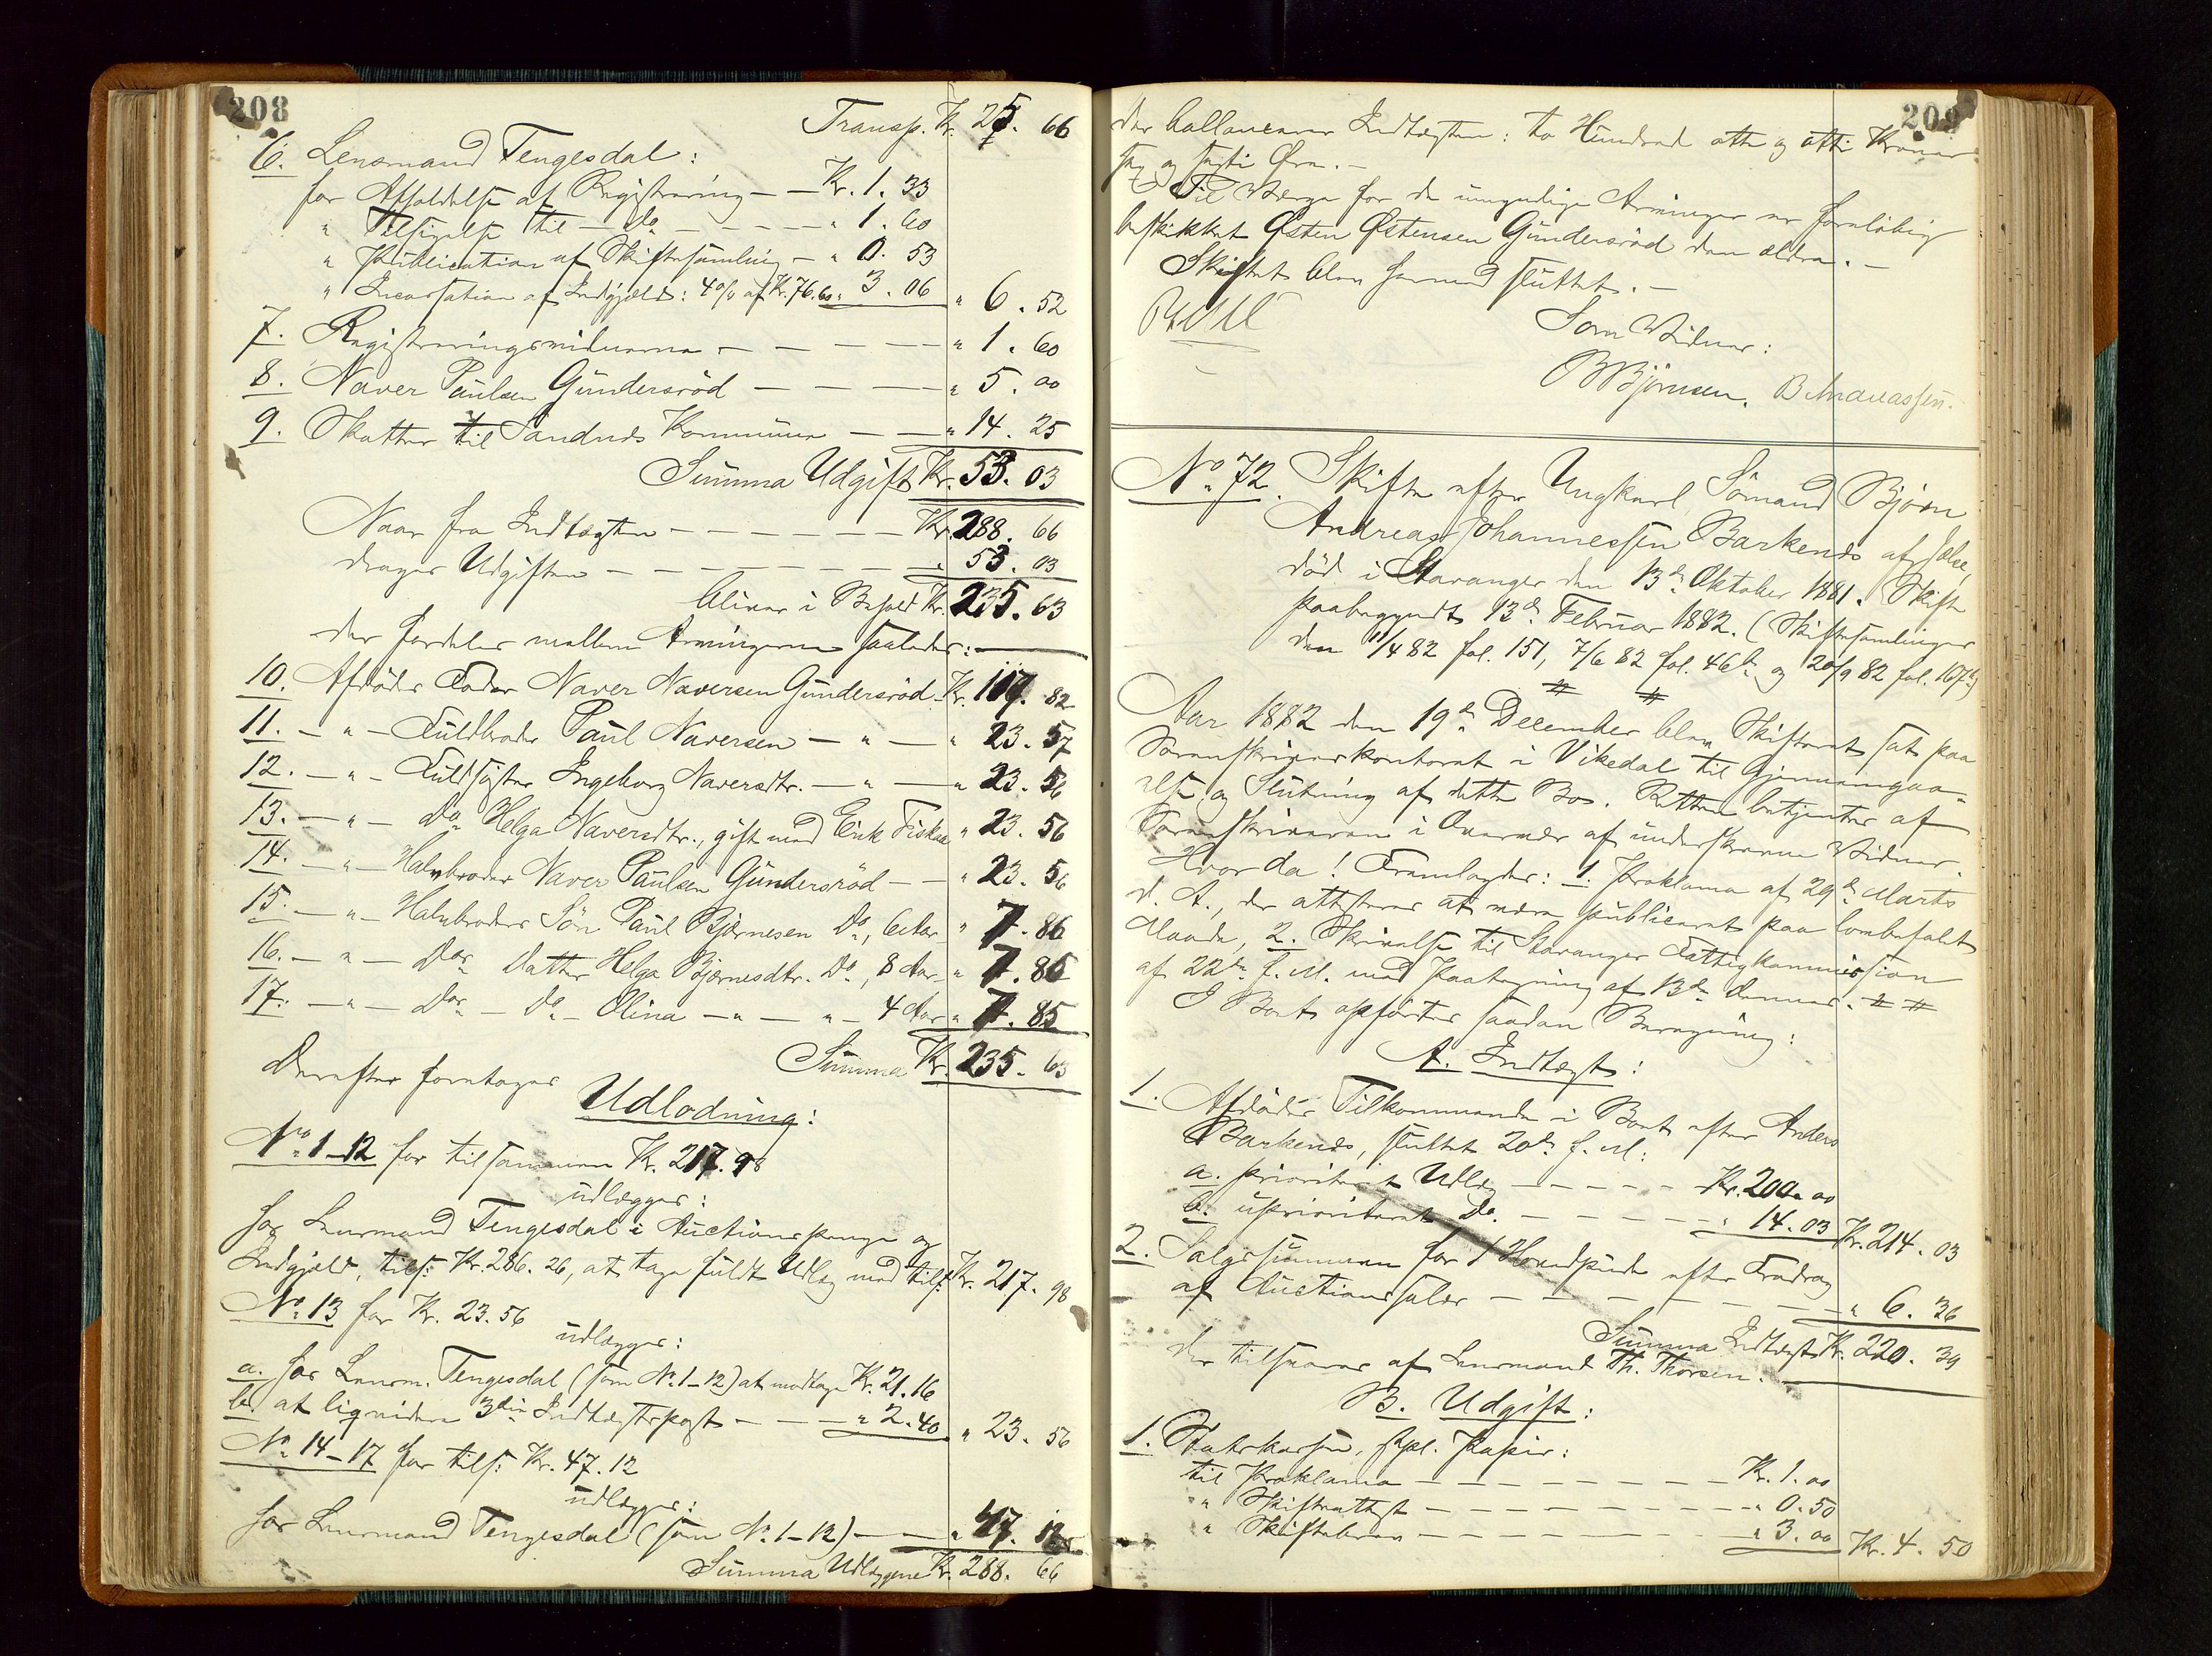 208
Transp. Kr. 25. 66
6. Lensmand Tengesdal:
for Afholdelse af Registrering — — Kr. 1. 33
" Tilsigelse til — do — — — — " 1. 60
" Publication af Skiftesamling — " 0. 53
" Incassation af Indgjæld: 4 % af Kr. 76.60 " 3. 06 " 6. 52
7. Registreringsvidnerne — — — — " 1. 60
8. Naver Paulsen Gundersröd — — — " 5. 00
9. Skatter til Sandnes Kommune — — " 14. 25
Summa Udgift Kr. 53. 03
Naar fra Indtægten — — — — — Kr. 288. 66
drages Udgiften — — — — — — " 53. 03
bliver i Behold Kr. 235. 63
der fordeles mellem Arvingerne saaledes:
10. Afdödes Fader Naver Naversen Gundersröd Kr. 117. 82
11. — " — Fuldbroder Paul Naversen — " — " 23. 57
12. — " — Fuldsöster Ingeborg Naversdtr. — " — " 23. 56
13. — " — do Helga Naversdtr., gift med Eirik Fiskaa " 23. 56
14. — " — Halvbroder Naver Paulsen Gundersröd — — " 23. 56
15. — " — Halvbroders Sön Paul Bjørnesen Do, 6 Aar " 7. 86
16. — " — Dos Datter Helga Bjørnesdtr. Do, 8 Aar " 7. 86
17. — " — Dos — Do — Olina — " — " — 4 Aar " 7. 85
Summa Kr. 235. 63
Derefter foretages
Udlodning:
No 1–12 for tilsammen Kr. 217. 98
udlægges:
hos Lensmand Tengesdal i Auctionspenge og
Indgjæld, tils: Kr. 286. 26, at tage fuldt Udlæg med tils: Kr. 217. 98
No 13 for Kr. 23. 56
udlægges:
a. hos Lensm. Tengesdal (som No 1–12) at modtage Kr. 21. 16
b. at liqvidere 3die Indtægtspost — — — " 2. 40 " 23. 56
No 14–17 for tils: Kr. 47. 12
udlægges:
hos Lensmand Tengesdal (som No 1–12) — — " 47. 12
Summa Udlæggene Kr. 288. 66
209
der ballancerer Indtægten: to Hundrede otte og otti Kroner
sex og sexti Øre. —
Til Værge for de umyndige Arvinger er foreløbig
beskikket Østen Østensen Gundersröd den ældre. —
Skiftet blev hermed sluttet. —
Som Vidner:
BBjørnsen. B Ananassen.
No 72. Skifte efter Ungkarl Sömand Björn
Andreas Johannessen Barkenes af Jelse,
död i Stavanger den 13de Oktober 1881. Skifte
paabegyndt 13de Februar 1882. (Skiftesamlinger
den 11/4 82 fol. 151, 7/6 82 fol. 46b og 20/9 82 fol. 167b)
Aar 1882 den 19de December blev Skifteret sat paa
Sorenskriverkontoret i Vikedal til Gjennemgaa-
else og Slutning af dette Bo. Retten betjentes af
Sorenskriveren i Overvær af underskrevne Vidner.
Hvorda! Fremlagdes: 1. Proklama af 29de Marts
d. A., der attesteres at være publiceret paa lovbefalet
Maade, 2. Skrivelse til Stavanger Fattigkommission
af 22de f. M. med Paategning af 13de dennes.
I Boet opförtes saadan Beregning:
A. Indtægt:
1. Afdödes Tilkommende i Boet efter Anders
Barkenes, sluttet 20de f. M:
a. prioriteret Udlæg — — — — Kr. 200. 00
b. uprioriteret do. — — — — " 14. 03 Kr. 214. 03
2. Salgssummen for 1 Hovedpude efter Fradrag
af Auctionssalær — — — — — — " 6. 36
Summa Indtægt Kr. 220. 39
der tilsvares af Lensmand Th. Thorsen.
B. Udgift:
1. Statskassen, stpl. Papir:
til Proklama — — — — — — Kr. 1. 00
" Skifteattest — — — — — — " 0. 50
" Skiftebrev — — — — — — " 3. 00 Kr. 4. 50